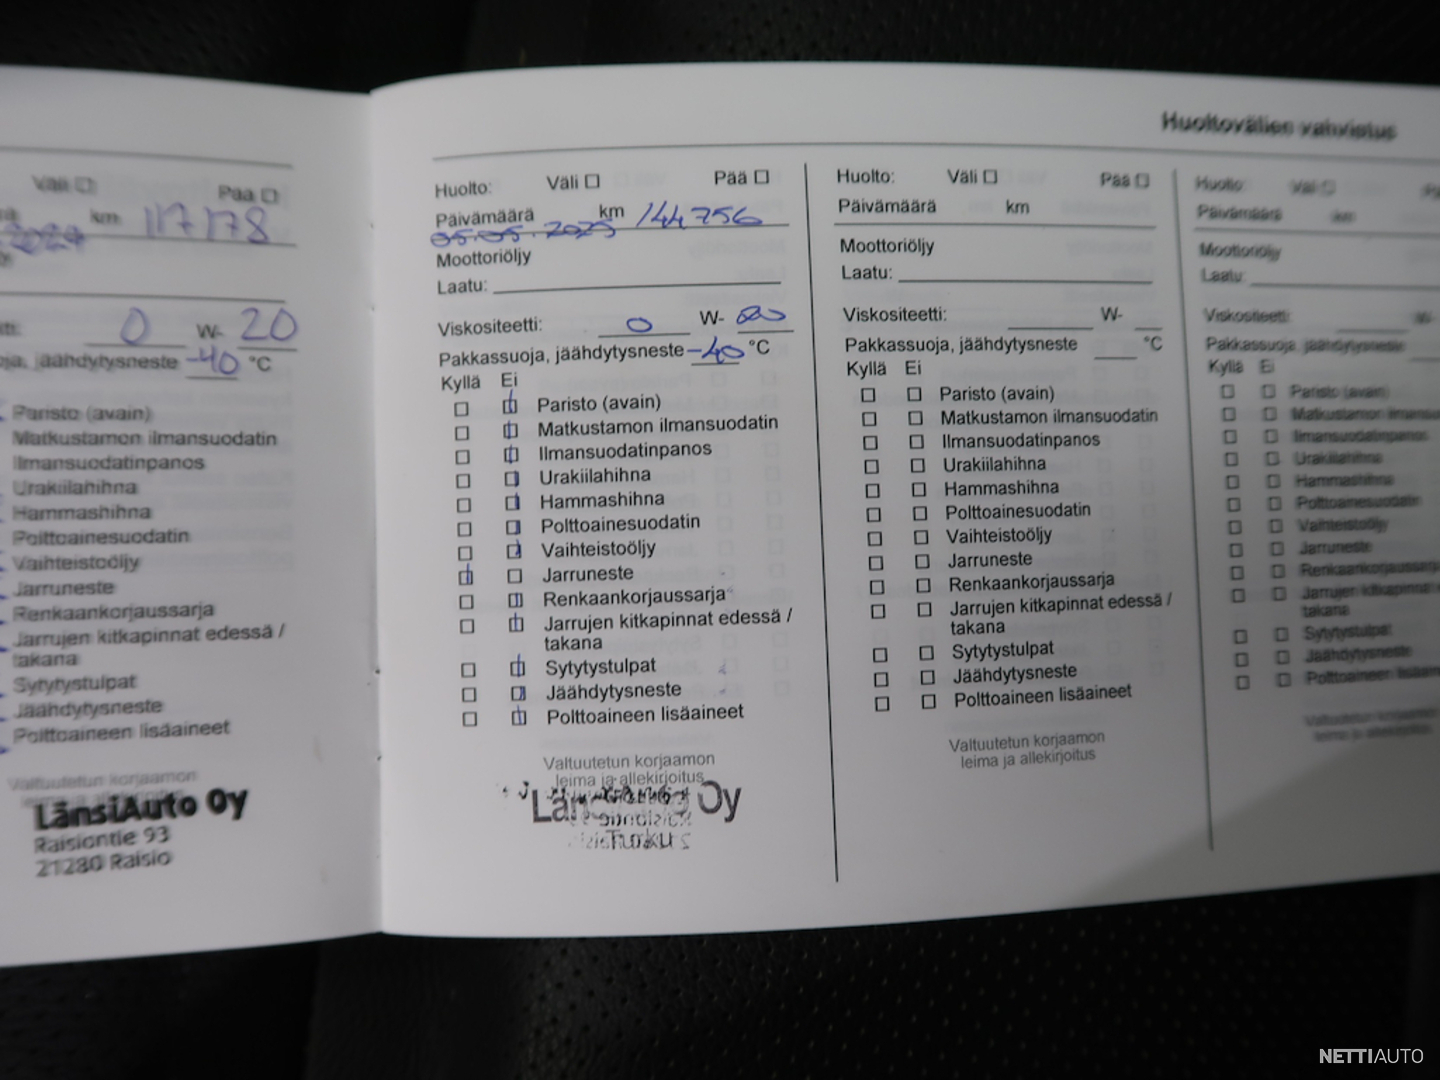 Huoltovälien vahvistus
Väli ☐ Pää ☐
km 117178
2024
0 W- 20
jäähdytysneste -40 °C
Paristo (avain)
Matkustamon ilmansuodatin
Ilmansuodatinpanos
Urakiilahihna
Hammashihna
Polttoainesuodatin
Vaihteistoöljy
Jarruneste
Renkaankorjaussarja
Jarrujen kitkapinnat edessä /
takana
Sytytystulpat
Jäähdytysneste
Polttoaineen lisäaineet
Valtuutetun korjaamon
LänsiAuto Oy
Raisiontie 93
21280 Raisio
Huolto: Väli ☐ Pää ☐
Päivämäärä km 144756
05.05.2025
Moottoriöljy
Laatu:
Viskositeetti: 0 W- 20
Pakkassuoja, jäähdytysneste -40 °C
Kyllä Ei
Paristo (avain)
Matkustamon ilmansuodatin
Ilmansuodatinpanos
Urakiilahihna
Hammashihna
Polttoainesuodatin
Vaihteistoöljy
Jarruneste
Renkaankorjaussarja
Jarrujen kitkapinnat edessä /
takana
Sytytystulpat
Jäähdytysneste
Polttoaineen lisäaineet
Valtuutetun korjaamon
leima ja allekirjoitus
Oy
Turku
Huolto: Väli ☐ Pää ☐
Päivämäärä km
Moottoriöljy
Laatu:
Viskositeetti: W-
Pakkassuoja, jäähdytysneste °C
Kyllä Ei
Paristo (avain)
Matkustamon ilmansuodatin
Ilmansuodatinpanos
Urakiilahihna
Hammashihna
Polttoainesuodatin
Vaihteistoöljy
Jarruneste
Renkaankorjaussarja
Jarrujen kitkapinnat edessä /
takana
Sytytystulpat
Jäähdytysneste
Polttoaineen lisäaineet
Valtuutetun korjaamon
leima ja allekirjoitus
Huolto Väli ☐
Päivämäärä km
Moottoriöljy
Laatu:
Viskositeetti: W-
Pakkassuoja, jäähdytysneste
Kyllä Ei
Paristo (avain)
Matkustamon
Ilmansuodatinpanos
Urakiilahihna
Hammashihna
Polttoainesuodatin
Vaihteistoöljy
Jarruneste
Renkaankorjaussarja
Jarrujen kitkapinnat
takana
Sytytystulpat
Jäähdytysneste
Polttoaineen
Valtuutetun
leima ja
NETTIAUTO